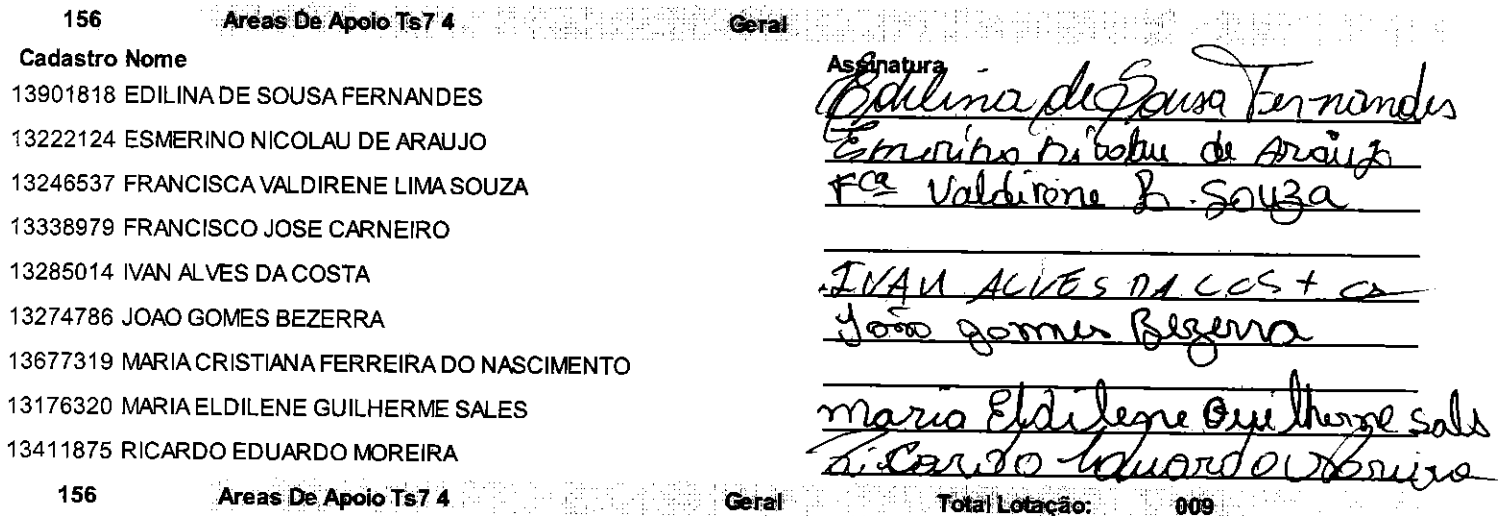 156 Areas De Apoio Ts7 4 Geral
Cadastro Nome Assinatura
13901818 EDILINA DE SOUSA FERNANDES Edilina de Sousa Fernandes
13222124 ESMERINO NICOLAU DE ARAUJO Emerino Nicolau de Araújo
13246537 FRANCISCA VALDIRENE LIMA SOUZA Fca Valdirene L. Souza
13338979 FRANCISCO JOSE CARNEIRO
13285014 IVAN ALVES DA COSTA IVAN ALVES DA COSta
13274786 JOAO GOMES BEZERRA João gomes Bezerra
13677319 MARIA CRISTIANA FERREIRA DO NASCIMENTO
13176320 MARIA ELDILENE GUILHERME SALES maria Eldilene Guilherme Sals
13411875 RICARDO EDUARDO MOREIRA Ricardo Eduardo Moreira
156 Areas De Apoio Ts7 4 Geral Total Lotação: 009